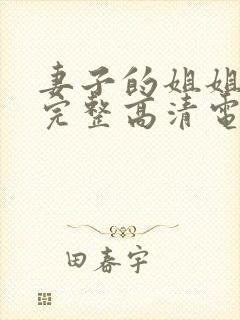 妻子的姐姐
完整高清電
田春宇